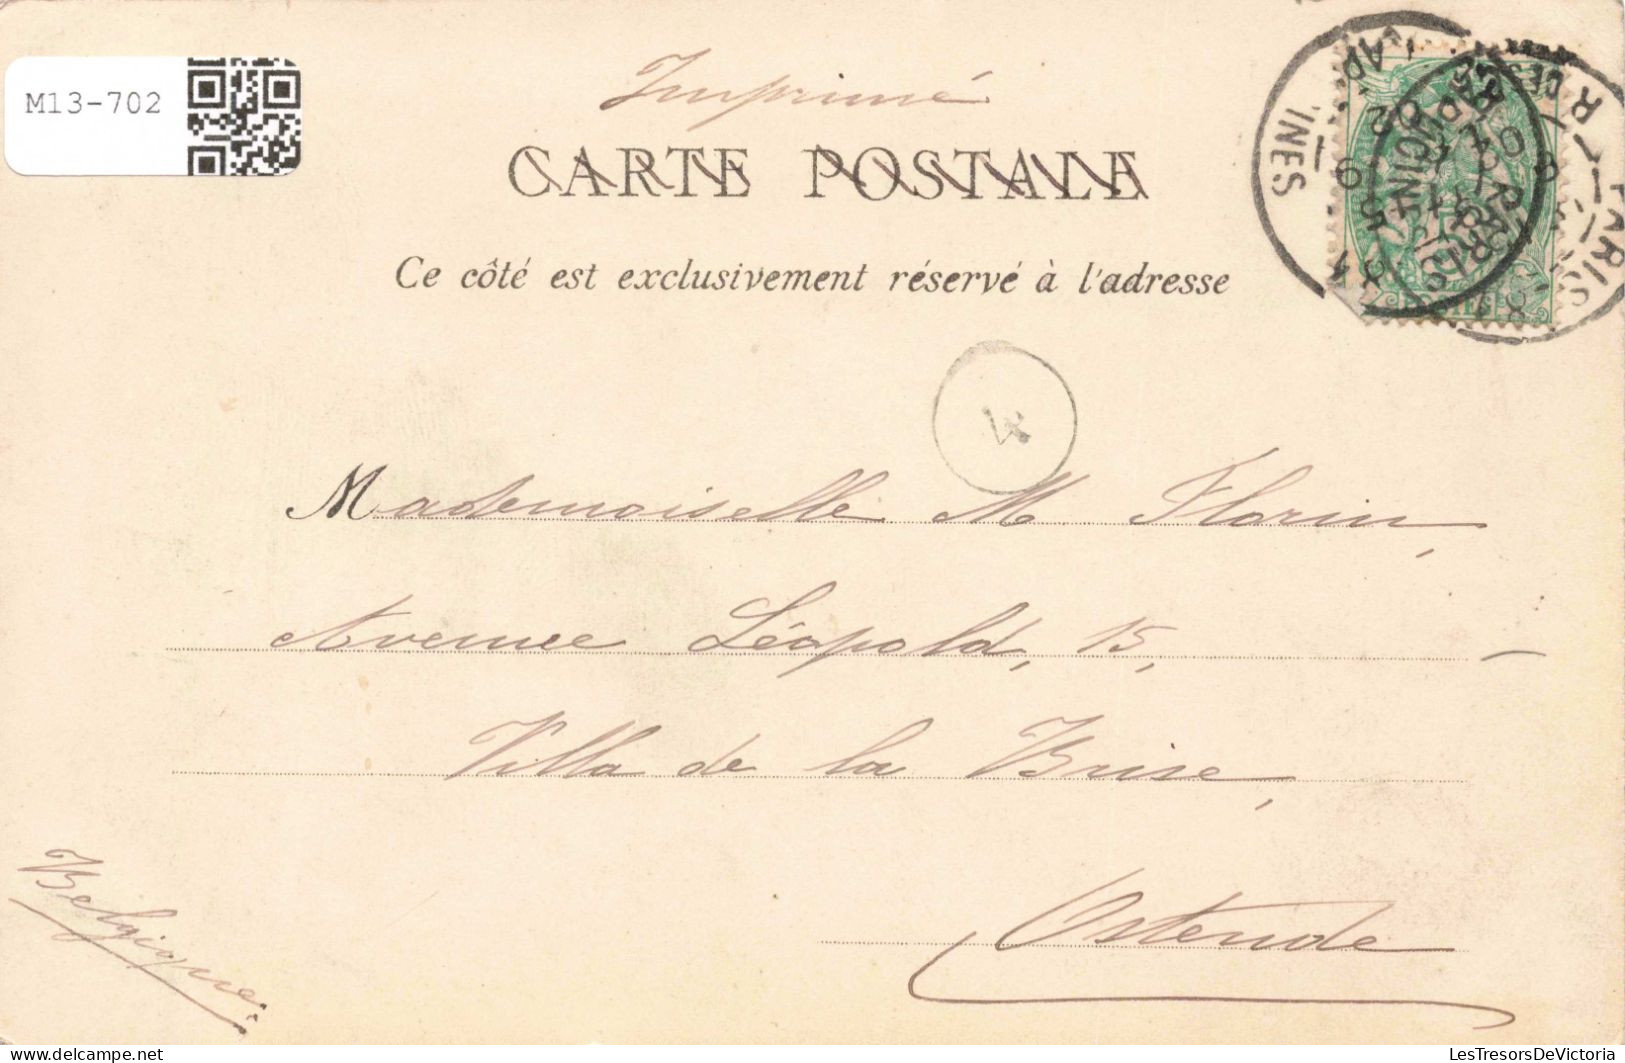 M13-702
Imprimé
CARTE POSTALE
Ce côté est exclusivement réservé à l'adresse
PARIS
4
Mademoiselle M Florin,
Avenue Léopold, 15, —
Villa de la Brise,
Ostende
Belgique.
POSTES
delcampe.net
LesTresorsDeVictoria